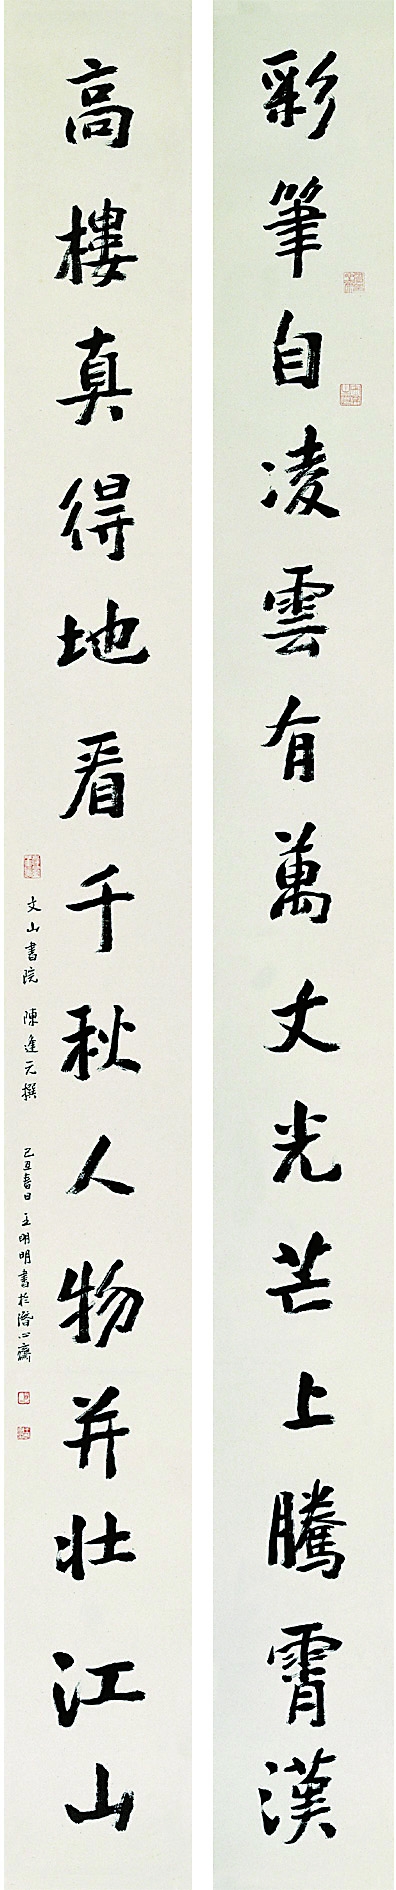 彩筆自凌雲有萬丈光芒上騰霄漢
高樓真得地看千秋人物并壯江山
文山書院 陳逢元撰 己丑春日 王明明書於潛心齋